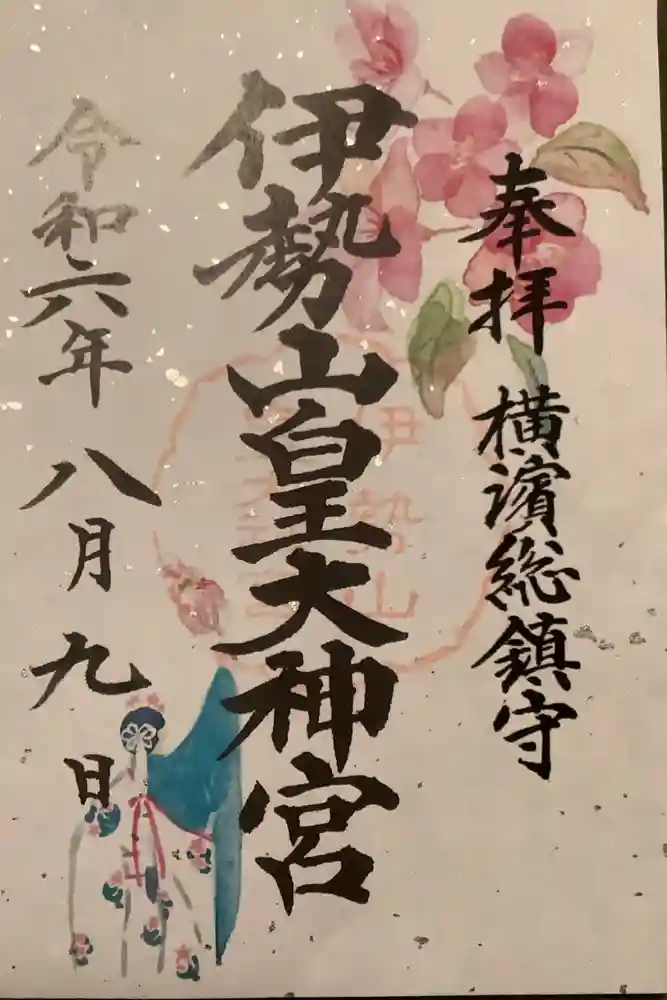 奉拝 横濱総鎮守
伊勢山皇大神宮
令和六年 八月九日
伊勢山